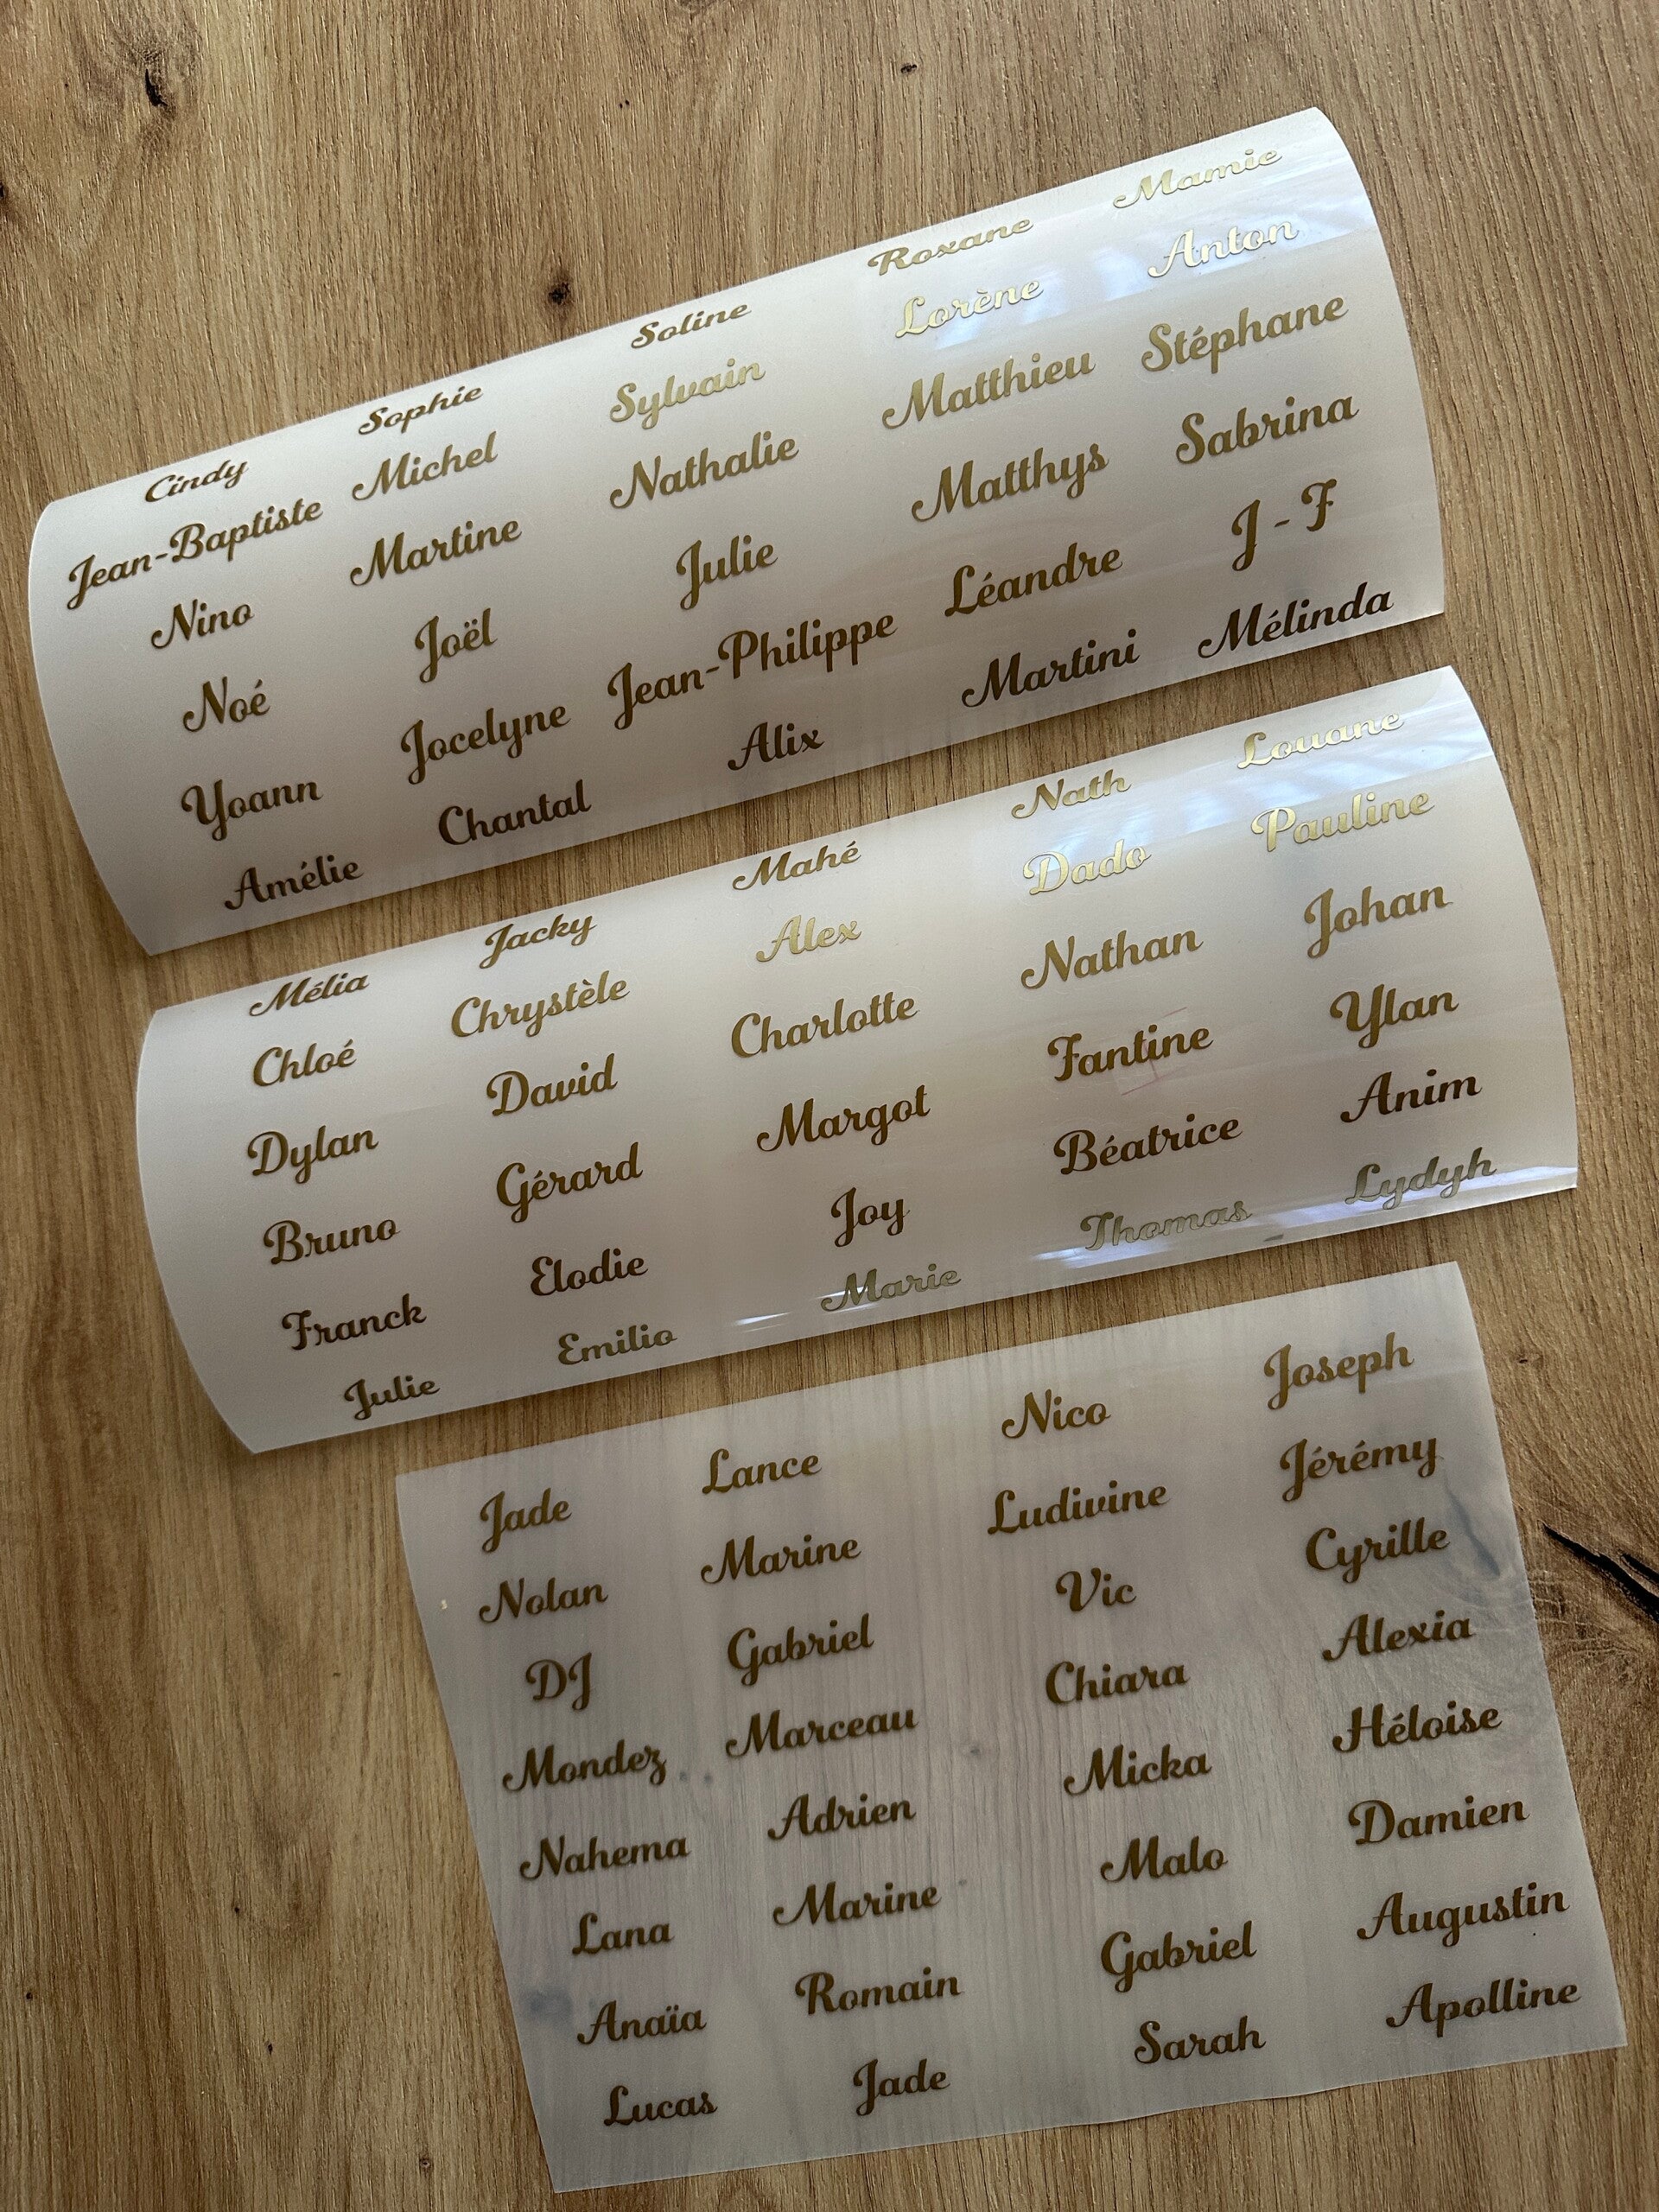 Cindy Sophie Soline Roxane Mamie
Jean-Baptiste Michel Sylvain Lorène Anton
Nino Martine Nathalie Matthieu Stéphane
Noé Joël Julie Matthys Sabrina
Yoann Jocelyne Jean-Philippe Léandre J - F
Amélie Chantal Alix Martini Mélinda
Mélia Jacky Mahé Nath Louane
Chloé Chrystèle Alex Dado Pauline
Dylan David Charlotte Nathan Johan
Bruno Gérard Margot Fantine Ylan
Franck Elodie Joy Béatrice Anim
Julie Emilio Marie Thomas Lydyh
Jade Lance Nico Joseph
Nolan Marine Ludivine Jérémy
DJ Gabriel Vic Cyrille
Mondez Marceau Chiara Alexia
Nahema Adrien Micka Héloise
Lana Marine Malo Damien
Anaïa Romain Gabriel Augustin
Lucas Jade Sarah Apolline